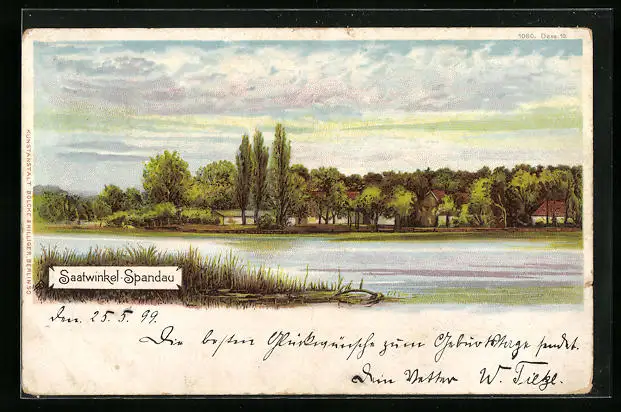 1060. Dess. 18.
KUNSTANSTALT BOLCKE & HILLIGER, BERLIN SO
Saatwinkel-Spandau
den. 25.5.99.
Die besten Glückwünsche zum Geburtstage sendet.
Dein Vetter W.